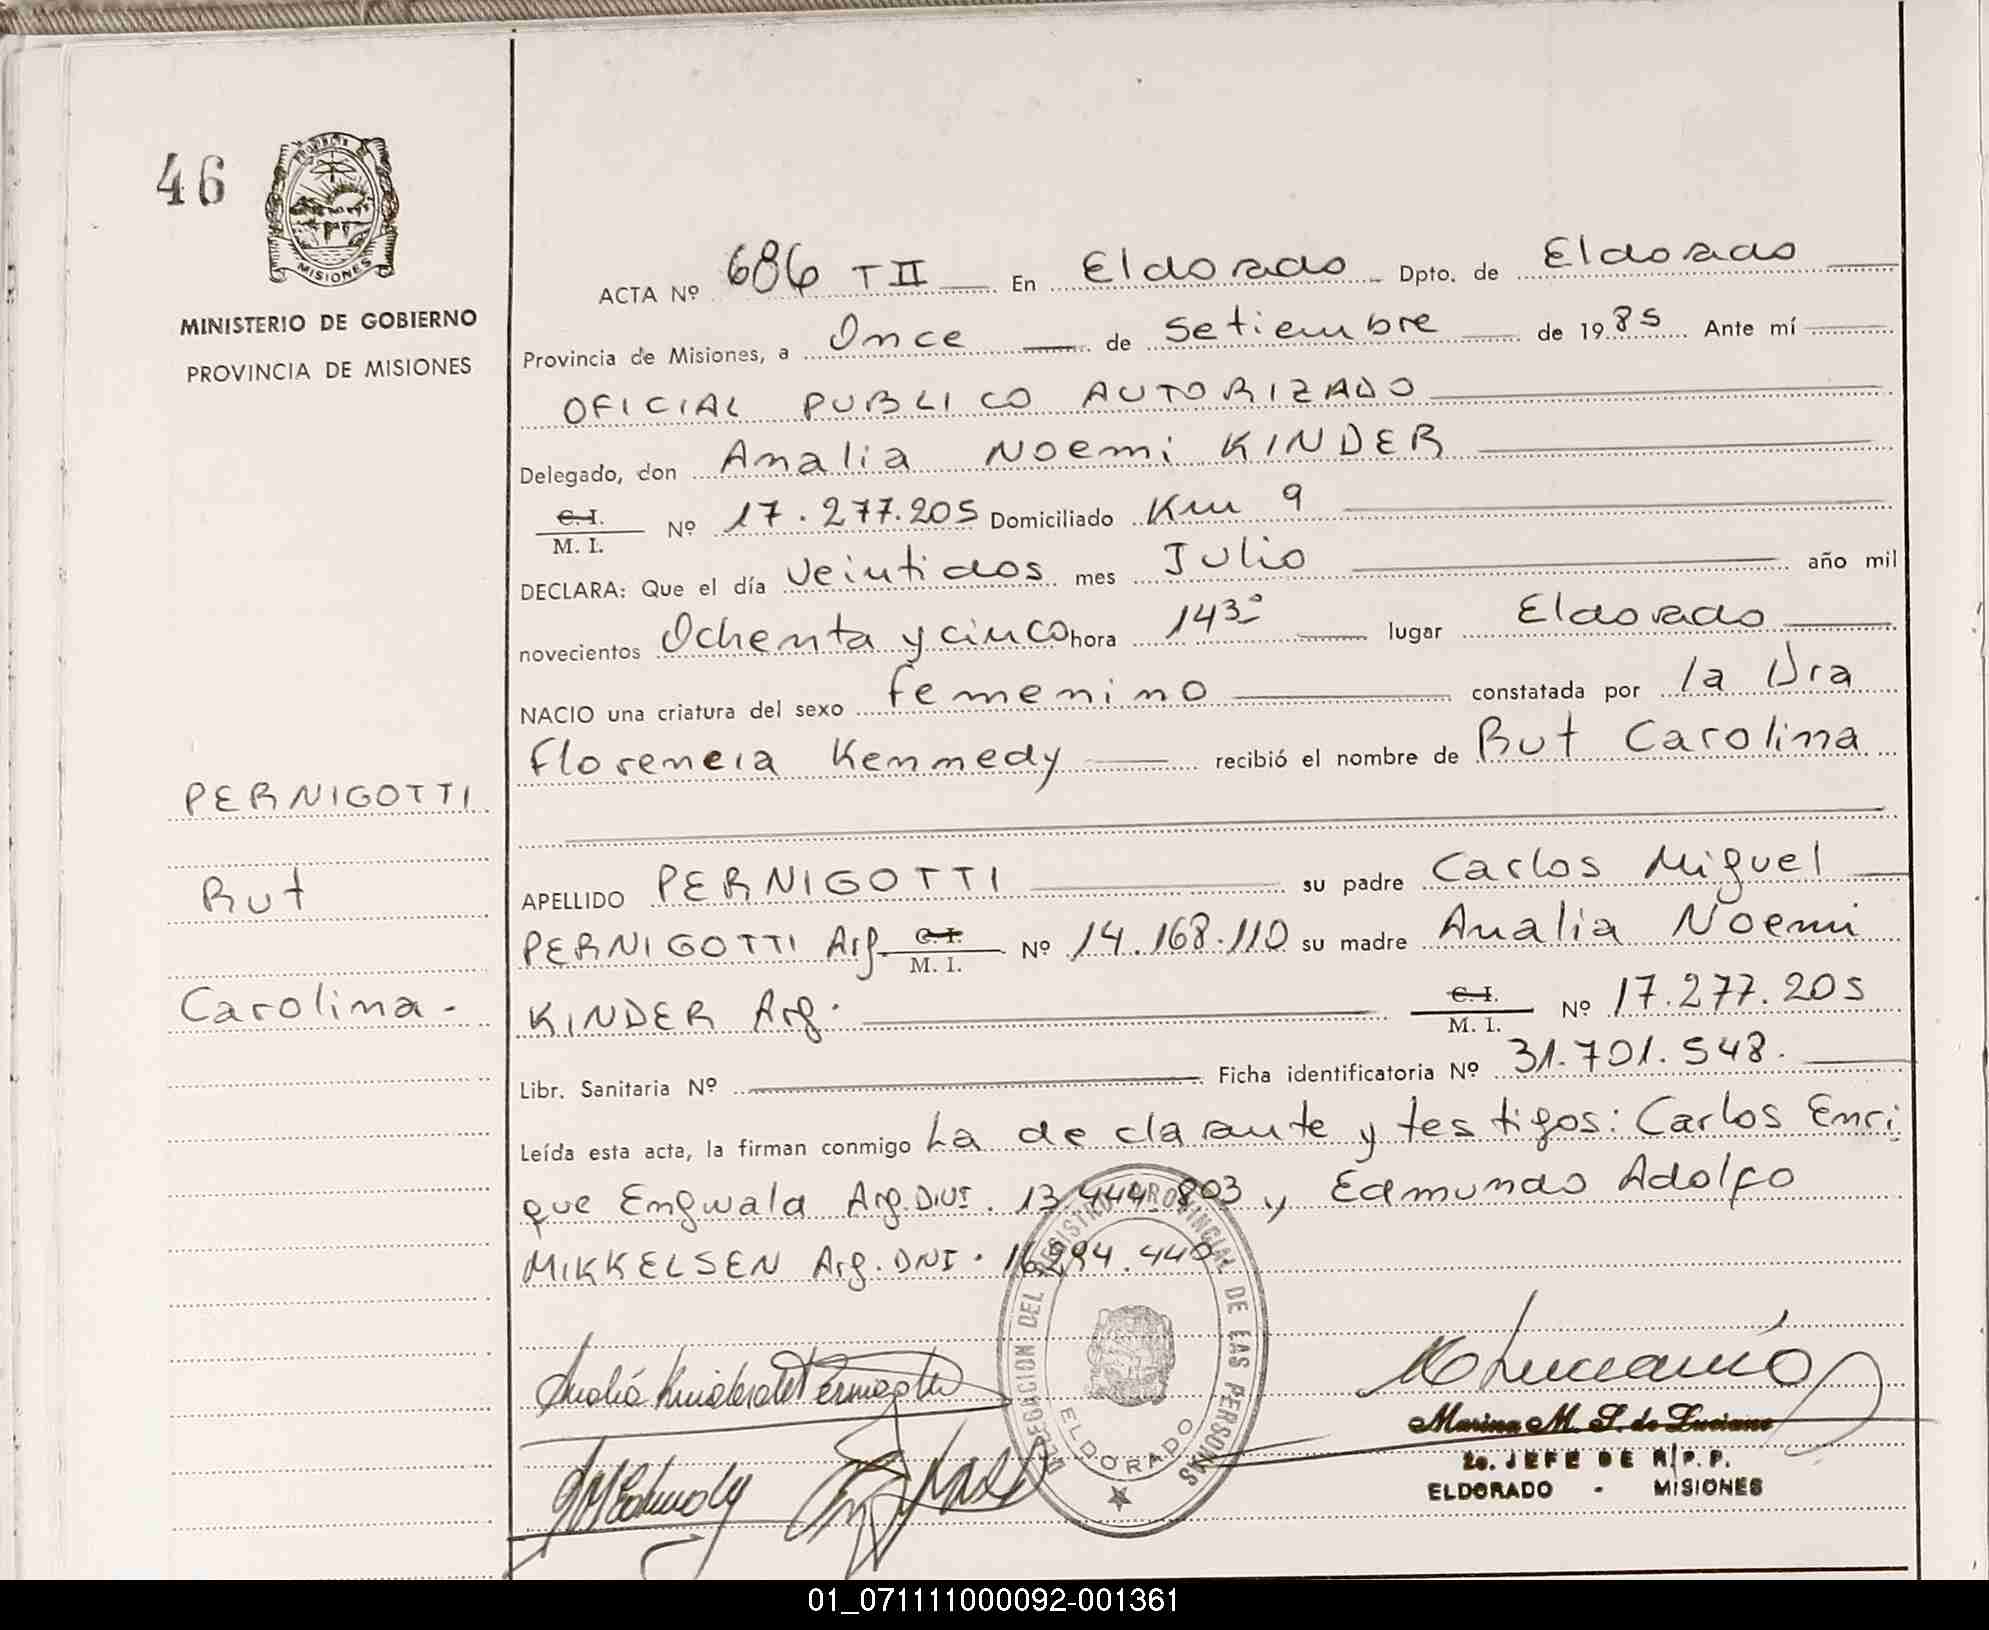 46
PROVINCIA DE
MISIONES
MINISTERIO DE GOBIERNO
PROVINCIA DE MISIONES
ACTA Nº 686 T II En Eldorado Dpto. de Eldorado
Provincia de Misiones, a Once de Setiembre de 1985 Ante mí
OFICIAL PUBLICO AUTORIZADO
Delegado, don Analia Noemi KINDER
C.I.
M. I. Nº 17.277.205 Domiciliado Km 9
DECLARA: Que el día Veintidos mes Julio año mil
novecientos Ochenta y cinco hora 14³⁰ lugar Eldorado
NACIO una criatura del sexo femenino constatada por la Dra
Florencia Kennedy recibió el nombre de Rut Carolina
PERNIGOTTI
Rut
Carolina-
APELLIDO PERNIGOTTI su padre Carlos Miguel
PERNIGOTTI Arg C.I. M. I. Nº 14.168.110 su madre Analia Noemi
KINDER Arg. C.I. M. I. Nº 17.277.205
Libr. Sanitaria Nº Ficha identificatoria Nº 31.701.548.
Leída esta acta, la firman conmigo La declarante y testigos: Carlos Enri
que Engwald Arg. DNI. 13.444.803 y Edmundo Adolfo
MIKKELSEN Arg. DNI. 16.294.440
DELEGACION DEL REGISTRO PROVINCIAL DE LAS PERSONAS
ELDORADO
Marina M. S. de Luciano
2o. JEFE DE R.P.P.
ELDORADO - MISIONES
01_071111000092-001361